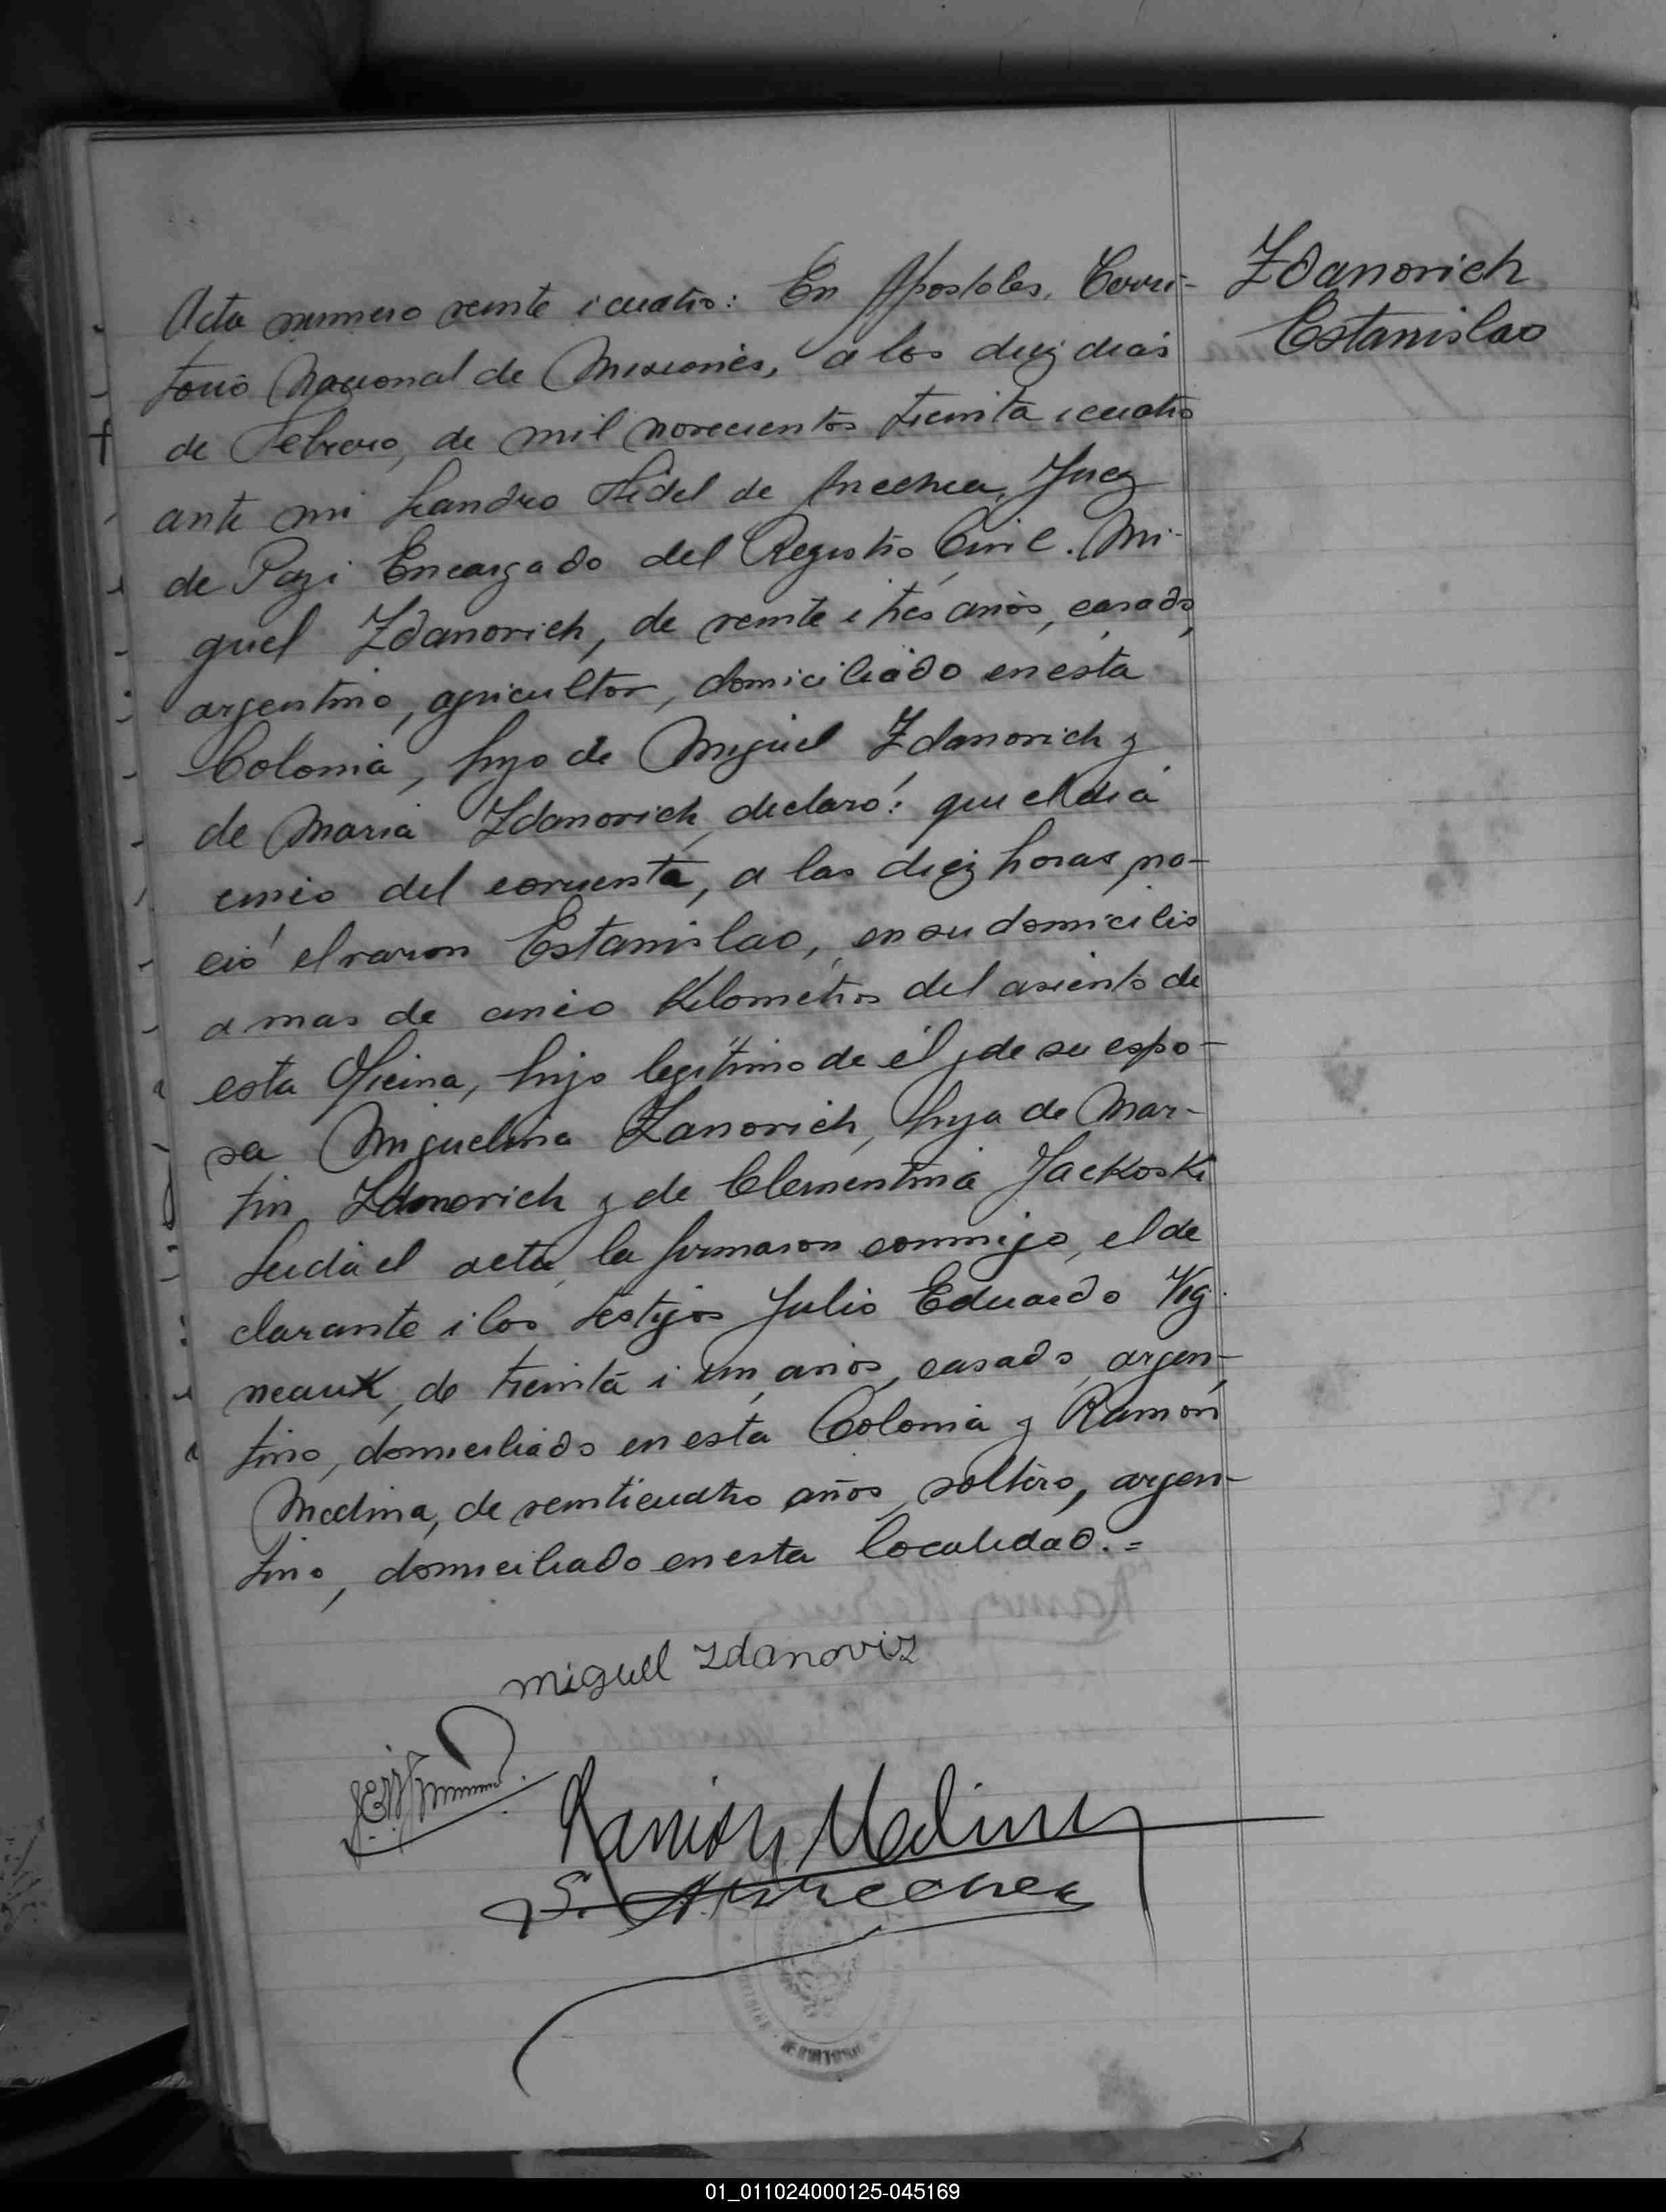 Zdanovich
Estanislao
Acta numero veinte i cuatro: En Apostoles, Terri-
torio Nacional de Misiones, a los diez dias
de Febrero, de mil novecientos treinta i cuatro
ante mi Leandro Fidel de Arrechea, Juez
de Paz i Encargado del Registro Civil. Mi-
guel Zdanovich, de veinte i tres años, casado,
argentino, agricultor, domiciliado en esta
Colonia, hijo de Miguel Zdanovich y
de Maria Zdanovich, declaró: que el dia
cinco del corriente, a las diez horas, na-
ció el varon Estanislao, en su domicilio
a mas de cinco Kilometros del asiento de
esta Oficina, hijo legítimo de él y de su espo-
sa Miguelina Zanovich, hija de Mar-
tin Zdanovich y de Clementina Jackoski
Leida el acta, la firmaron conmigo, el de
clarante i los testigos Julio Eduardo Vig
neaux, de treinta i un años, casado, argen-
tino, domiciliado en esta Colonia y Ramón
Medina, de veinticuatro años, soltero, argen-
tino, domiciliado en esta localidad. =
miguel Zdanoviz
Ramón Medina
01_011024000125-045169